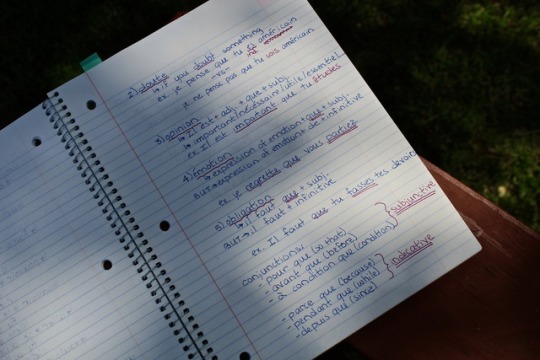 2) doute
↳ if you doubt something
ex. je pense que tu es américain
-vs-
je ne pense pas que tu sois américain
3) opinion
↳ Il est + adj. + que + subj.
↳ important/nécessaire/utile/essentiel
ex. Il est important que tu étudies
4) émotion
↳ expression of emotion + que + subj.
BUT → expression of emotion + de + infinitive
ex. je regrette que vous partiez
5) obligation
↳ il faut que + subj.
BUT → il faut + infinitive
ex. Il faut que tu fasses tes devoirs
conjunctions:
- pour que (so that)
- avant que (before)
- à condition que (condition)
subjunctive
- parce que (because)
- pendant que (while)
- depuis que (since)
indicative